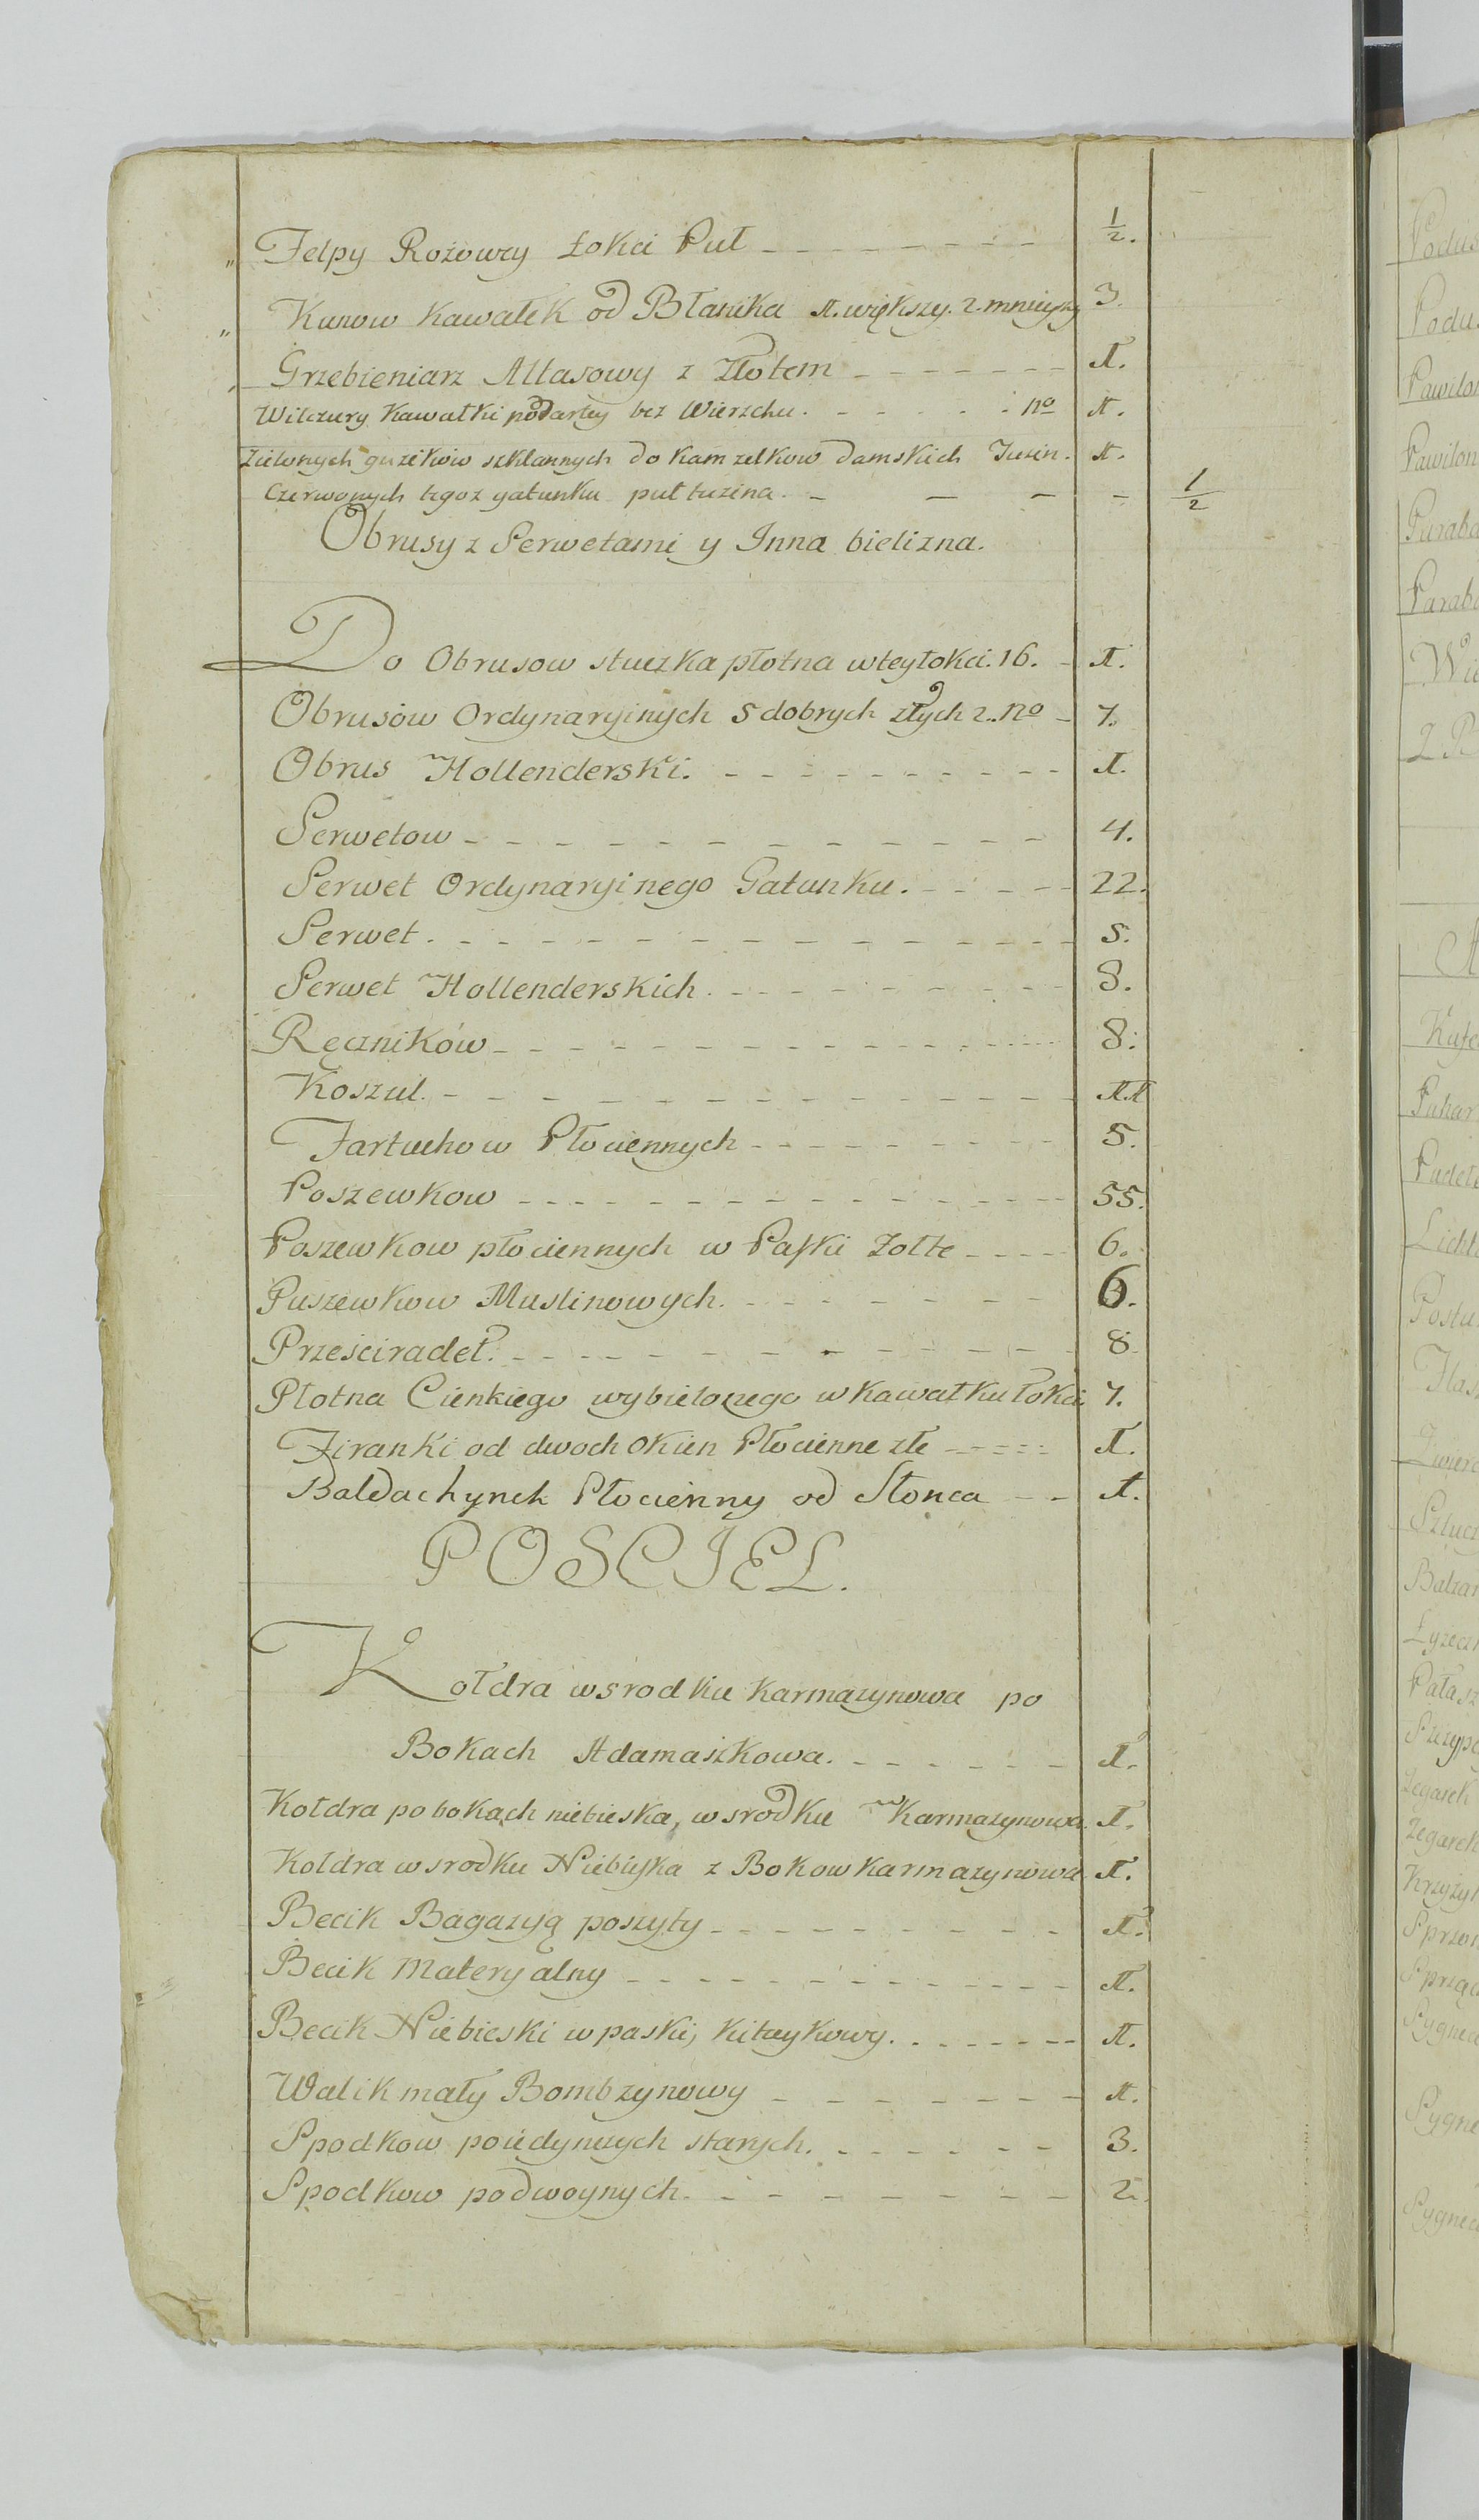 „ Felpy Rożowey Łokci Puł - - - - - - - - ½.
„ Kunow Kawałek od Błamka 1. większy. 2. mnieyszy 3.
„ Grzebieniarz Atłasowy z Złotem - - - - - - - 1.
Wilczury Kawałki podartey bez Wierzchu. - - - - - no 1.
Zielonych guzików szklannych do Kamzelkow damskich Tuzin. 1.
Czerwonych tegoz gatunku puł tuzina. - - - - ½
Obrusy z Serwetami y Inna bielizna.
Do Obrusow stuczka płotna w tey łokci. 16. - 1.
Obrusów Ordynaryinych 5 dobrych złych 2. no - 7.
Obrus Hollenderski. - - - - - - - - - - 1.
Serwetow - - - - - - - - - - - - 4.
Serwet Ordynaryinego Gatunku. - - - - - 22.
Serwet. - - - - - - - - - - - - - 5.
Serwet Hollenderskich. - - - - - - - - - 8.
Ręczników - - - - - - - - - - - - - - 8.
Koszul. - - - - - - - - - - - - - - 11
Fartuchow Płociennych - - - - - - - - - 5.
Poszewkow - - - - - - - - - - - - - 55.
Poszewkow płociennych w Paski Zołte - - - - 6.
Puszewkow Muslinowych. - - - - - - - - 6.
Prześciradeł. - - - - - - - - - - - - 8
Płotna Cienkiego wybielonego w Kawałku Łokci 7.
Firanki od dwoch Okien Płocienne złe - - - - - 1.
Baldachynek Płocienny od Słonca - - 1.
POSCIEL.
Kołdra w srodku Karmazynowa po
Bokach Adamaszkowa. - - - - - - 1.
Kołdra po bokach niebieska, w srodku Karmazynowa. 1.
Kołdra w srodku Niebieska z Bokow Karmazynowa 1.
Becik Bagazyą poszyty - - - - - - - - - 1.
Becik Materyalny - - - - - - - - - - - 1.
Becik Niebieski w paski, Kitaykowy. - - - - - - 1.
Walik mały Bombzynowy - - - - - - - 1.
Spodkow poiedynczych starych. - - - - - - 3.
Spodkow podwoynych. - - - - - - - - 2.